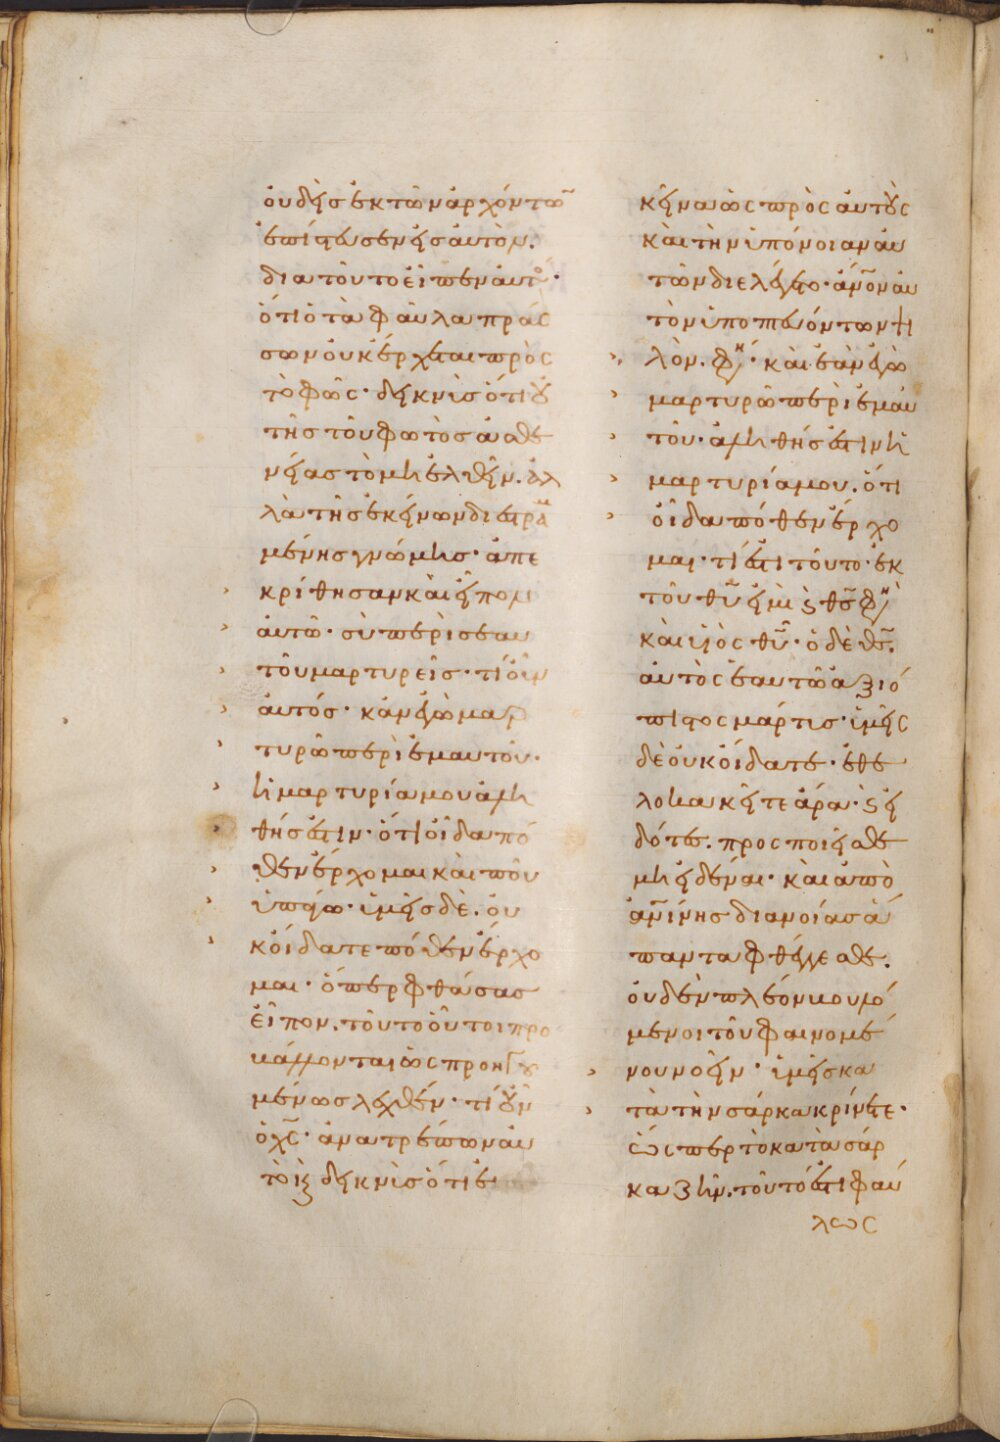 ουδεὶσ ἐκ τῶν ἀρχόντω̃
ἐπίστευσεν εἰσ αὐτὸν.
διατοῦτο εἶπεν αὐτοῖ·
ὅτι ὁ τὰ φαῦλα πράς
σων οὐκ ἔρχεται πρὸς
τὸ φῶς· δεικνὺσ ὅτι οὐ
τῆσ τοῦ φωτὸσ ἀσθε
νείασ τὸ μὴ ἐλθεῖν. ἀλ
λὰ τῆσ ἐκείνων διεστραμ
μένησ γνώμησ· ἀπε
κρίθησαν καὶ εἶπον
αὐτῶ· σὺ περὶ σεαυ
τοῦ μαρτυρεῖσ· τί οὖν
αὐτόσ· κἂν ἐγὼ μαρ
τυρῶ περὶ ἐμαυτοῦ·
ἡ μαρτυρία μου ἀλη
θήσ ἐστιν· ὅτι οἶδα πό
θεν ἔρχομαι καὶ ποῦ
ὑπάγω· ὑμεῖσ δὲ. οὐ
κ οἴδατε πόθεν ἔρχο
μαι· ὅπερ φθάσασ
εἶπον. τοῦτο οὗτοι προ
βάλλονται ὡς προηγου
μένωσ λεχθέν· τί οὖν
ὁ χς̃· ἀνατρέπων αυ
τοῖς δεικνὺσ ὅτι ἐ
κείνα ὡς πρὸς αὐτοὺς
καὶ τὴν ὑπόνοιαν αυ
τῶν διελέγετο· ἄν̃ον αυ
τὸν ὑποπτευόντων ψι
λόν. φη· καὶ ἐὰν ἐγὼ
μαρτυρῶ περὶ ἐμαυ
τοῦ· ἀληθήσ ἐστιν ἡ
μαρτυρία μου. ὅτι
οἶδα πόθεν ἔρχο
μαι· τί ἐστι τοῦτο· ἐκ
τοῦ θυ̃ εἰμὶ ϗ θς̃ φη
καὶ υἱὸς θυ̃· ὁ δὲ θς̃.
αὐτὸς ἑαυτῶ ἀξιό
πιστος μάρτυσ· ὑμεῖς
δὲ οὐκ οἴδατε· ἐθε
λοκακεῖτε ἄρα· ϗ εἰ
δότε. προσποιεῖσθε
μὴ εἰδέναι· καὶ ἀπὸ
ἀν̃ίνησ διανοίασ ἅ
παντα φθέγγεσθε.
οὐδὲν πλέον νουμό
μενοι τοῦ φαινομέ
νου νοεῖν· ὑμεῖσ κα
τὰ τὴν σάρκα κρίνετε·
ὥς περ τὸ κατὰ σάρ
κα ζῆν. τοῦτό ἐστι φαύ
λως